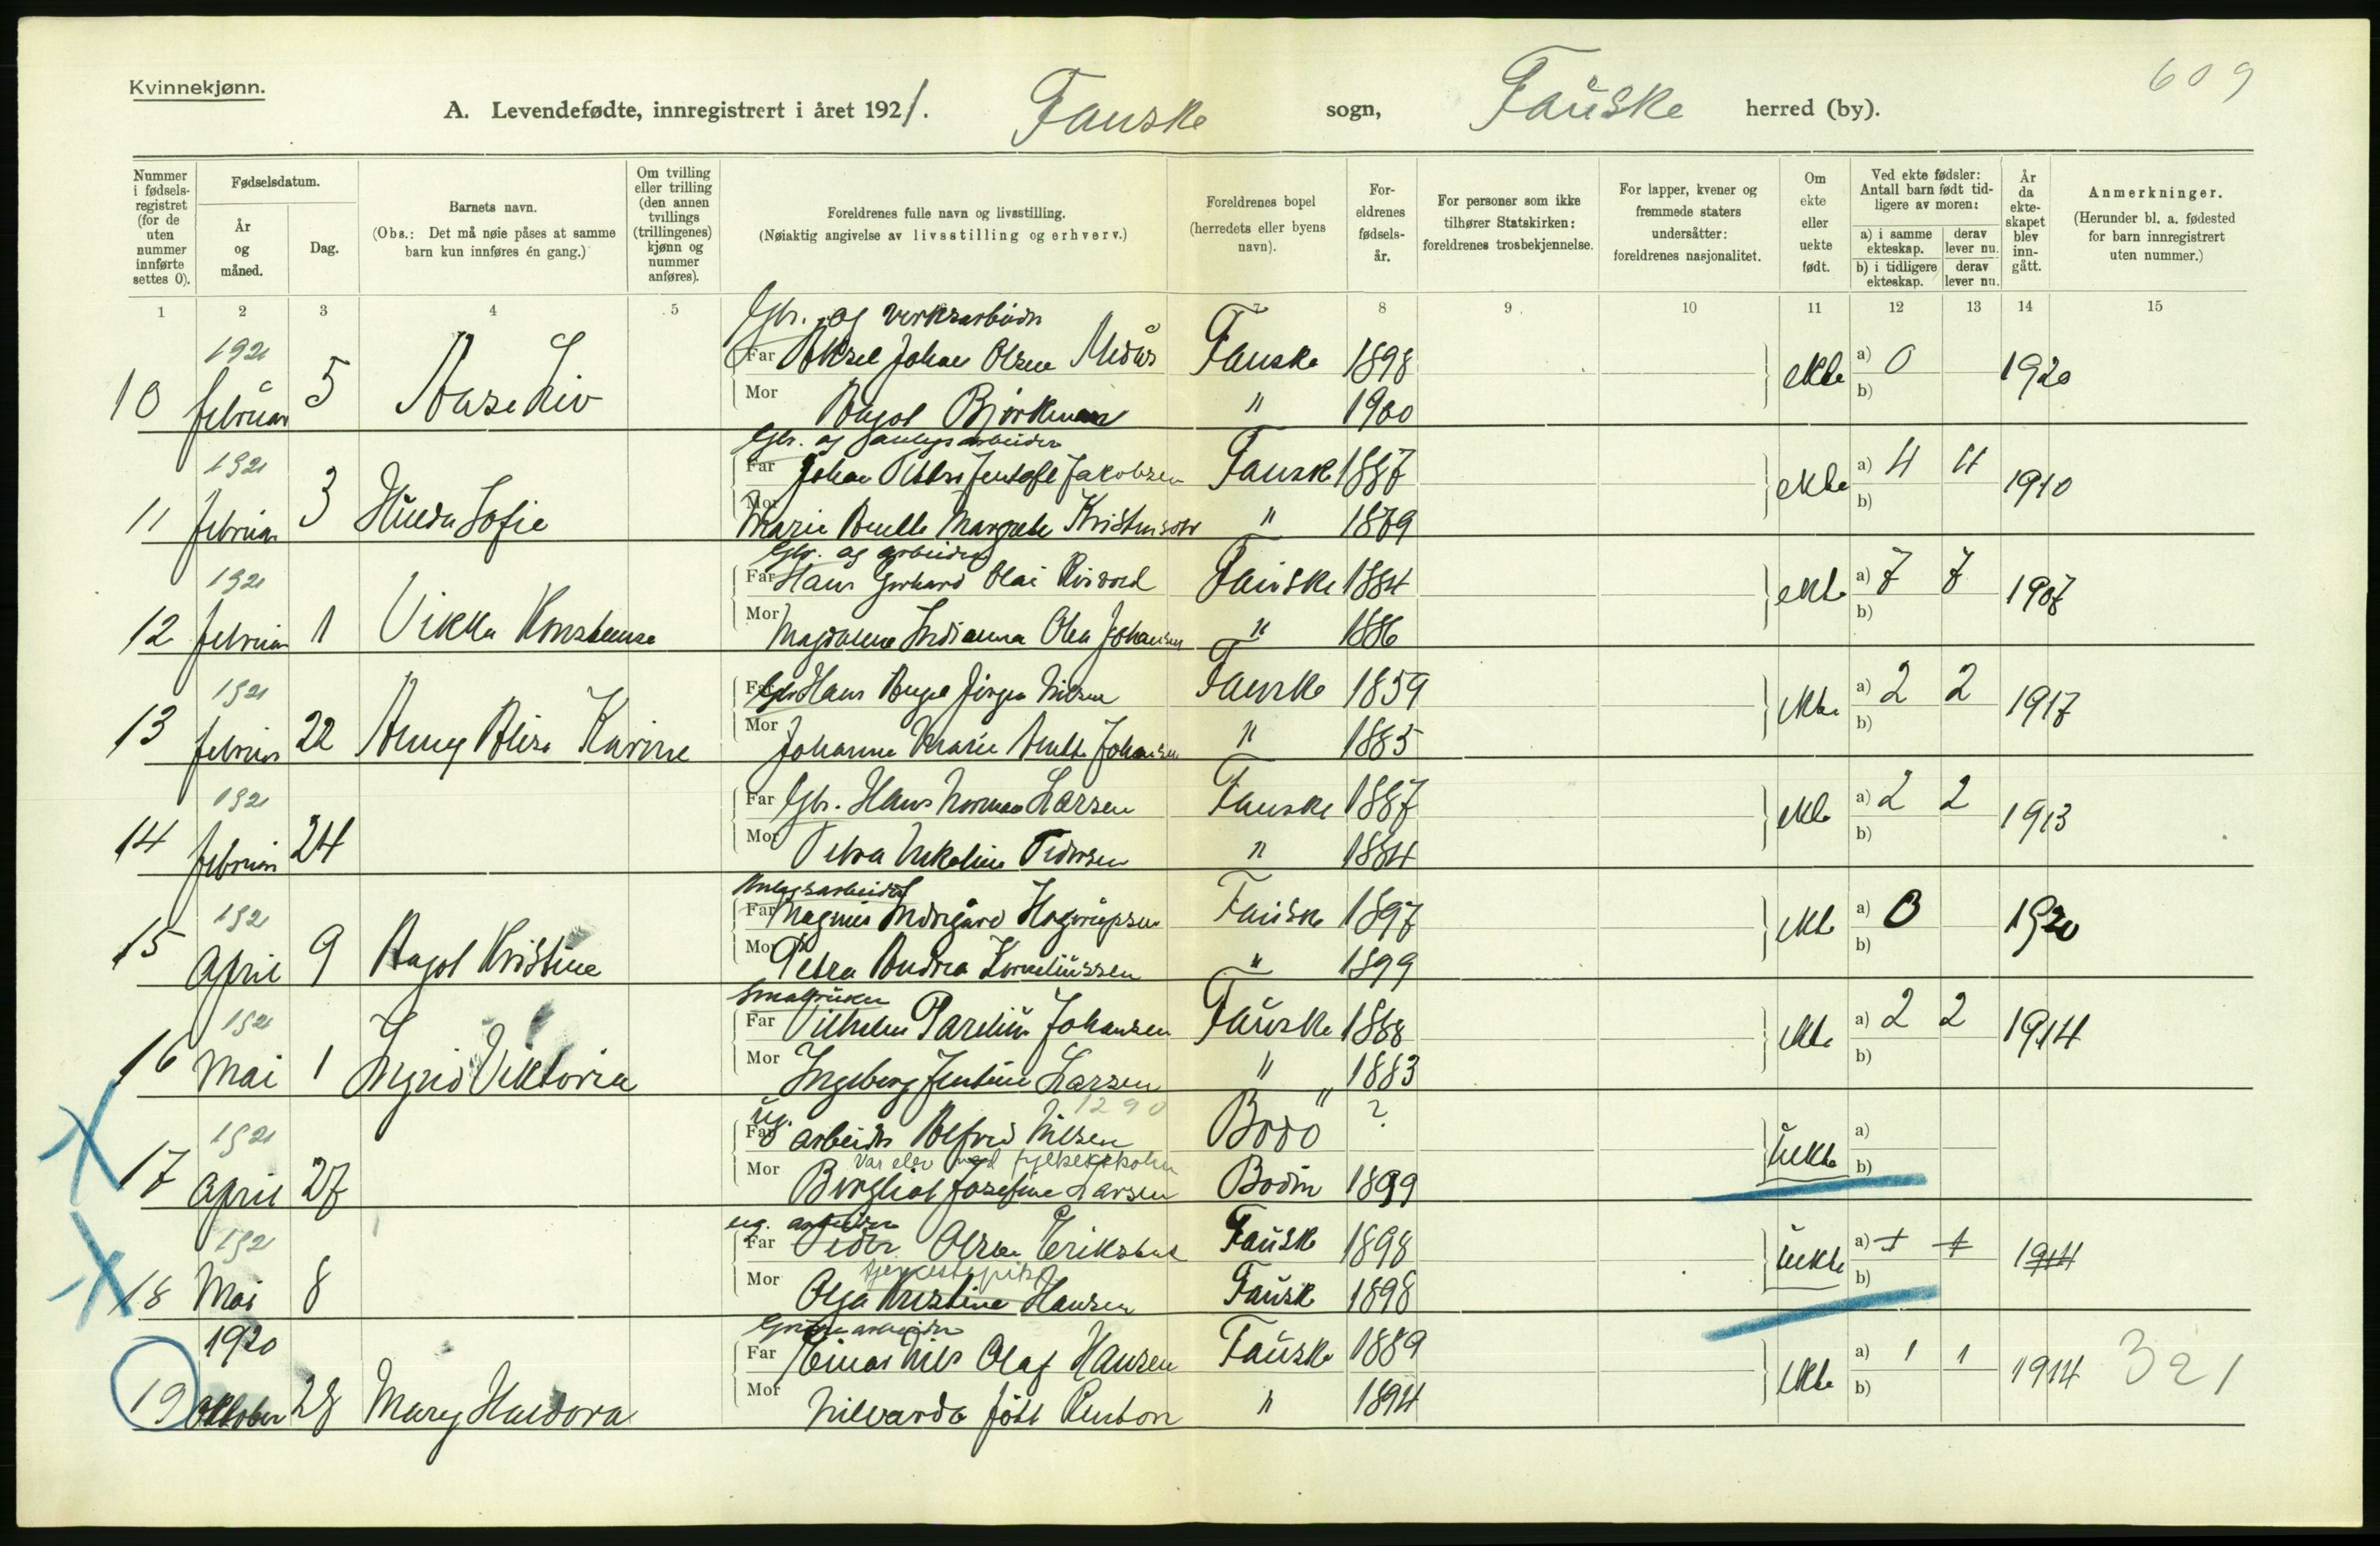 Kvinnekjønn.
609
A. Levendefødte, innregistrert i året 1921. Fauske sogn, Fauske herred (by).
Nummer i fødselsregistret (for de uten nummer innførte settes 0).
Fødselsdatum.
År og måned.
Dag.
Barnets navn.
(Obs.: Det må nøie påses at samme barn kun innføres én gang.)
Om tvilling eller trilling (den annen tvillings (trillingenes) kjønn og nummer anføres).
Foreldrenes fulle navn og livsstilling.
(Nøiaktig angivelse av livsstilling og erhverv.)
Foreldrenes bopel (herredets eller byens navn).
Foreldrenes fødselsår.
For personer som ikke tilhører Statskirken: foreldrenes trosbekjennelse.
For lapper, kvener og fremmede staters undersåtter: foreldrenes nasjonalitet.
Om ekte eller uekte født.
Ved ekte fødsler: Antall barn født tidligere av moren:
a) i samme ekteskap. derav lever nu.
b) i tidligere ekteskap. derav lever nu.
År da ekteskapet blev inngått.
Anmerkninger.
(Herunder bl. a. fødested for barn innregistrert uten nummer.)
1 2 3 4 5 7 8 9 10 11 12 13 14 15
Gbr. og verksarbeider
1921 Far Aksel Johan Olsen Fauske 1898 a) 0
10 februar 5 Aase Liv ekte 1920
Mor Bjørkman " 1900 b)
Gbr. og anlegsarbeider
1921 Far Johan Jakobsen Fauske 1887 a) 4 4
11 februar 3 Sofie ekte 1910
Mor Marie Margrete " 1889 b)
Gbr. og arbeider
1921 Far Hans Gerhard Olai Fauske 1884 a) 7 7
12 februar 1 ekte 1907
Mor Magdalena Indianna Olea Johansen " 1886 b)
1921 Far Gbr Hans Nilsen Fauske 1859 a) 2 2
13 februar 22 Anny Karine ekte 1917
Mor Johanna Marie Johansen " 1885 b)
1921 Far Gbr. Hans Larsen Fauske 1887 a) 2 2
14 februar 24 ekte 1913
Mor Petra Pedersen " 1884 b)
Anlegsarbeider
1921 Far Magnus Fauske 1897 a) 0
15 April 9 Kristine ekte 1920
Mor Petra Andrea Korneliussen " 1899 b)
Smabruker
1921 Far Vilhelm Parelius Johansen Fauske 1888 a) 2 2
16 Mai 1 Ingrid Viktoria ekte 1914
Mor Ingeborg Jentine Larsen " 1883 b)
1290
1921 Far ug. arbeider Alfred Nilsen Bodø ? a)
17 April 27 uekte
var elev ved fylkesskolen
Mor Bergliot Josefine Larsen Bodin 1899 b)
ug. arbeider
1921 Far Peder Olsen Fauske 1898 a) 1 1
18 Mai 8 uekte 1914
Mor Olga Kristine Hansen Fauske 1898 b)
Grubearbeider
1920 Far Einar Nils Olaf Hansen Fauske 1889 a) 1 1
19 Oktober 28 Mary Haldora ekte 1914 321
Mor " 1894 b)